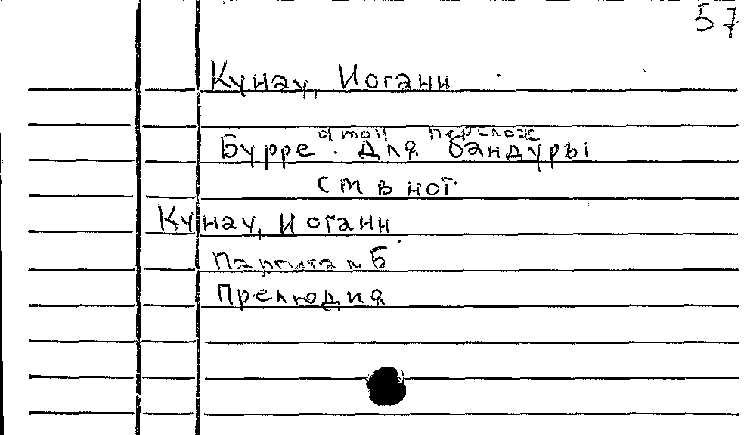 57
Кунау, Иоганн
перелож
Бурре. Для бандуры
см в нот.
Кунау, Иоганн
Партита № 6
Прелюдия